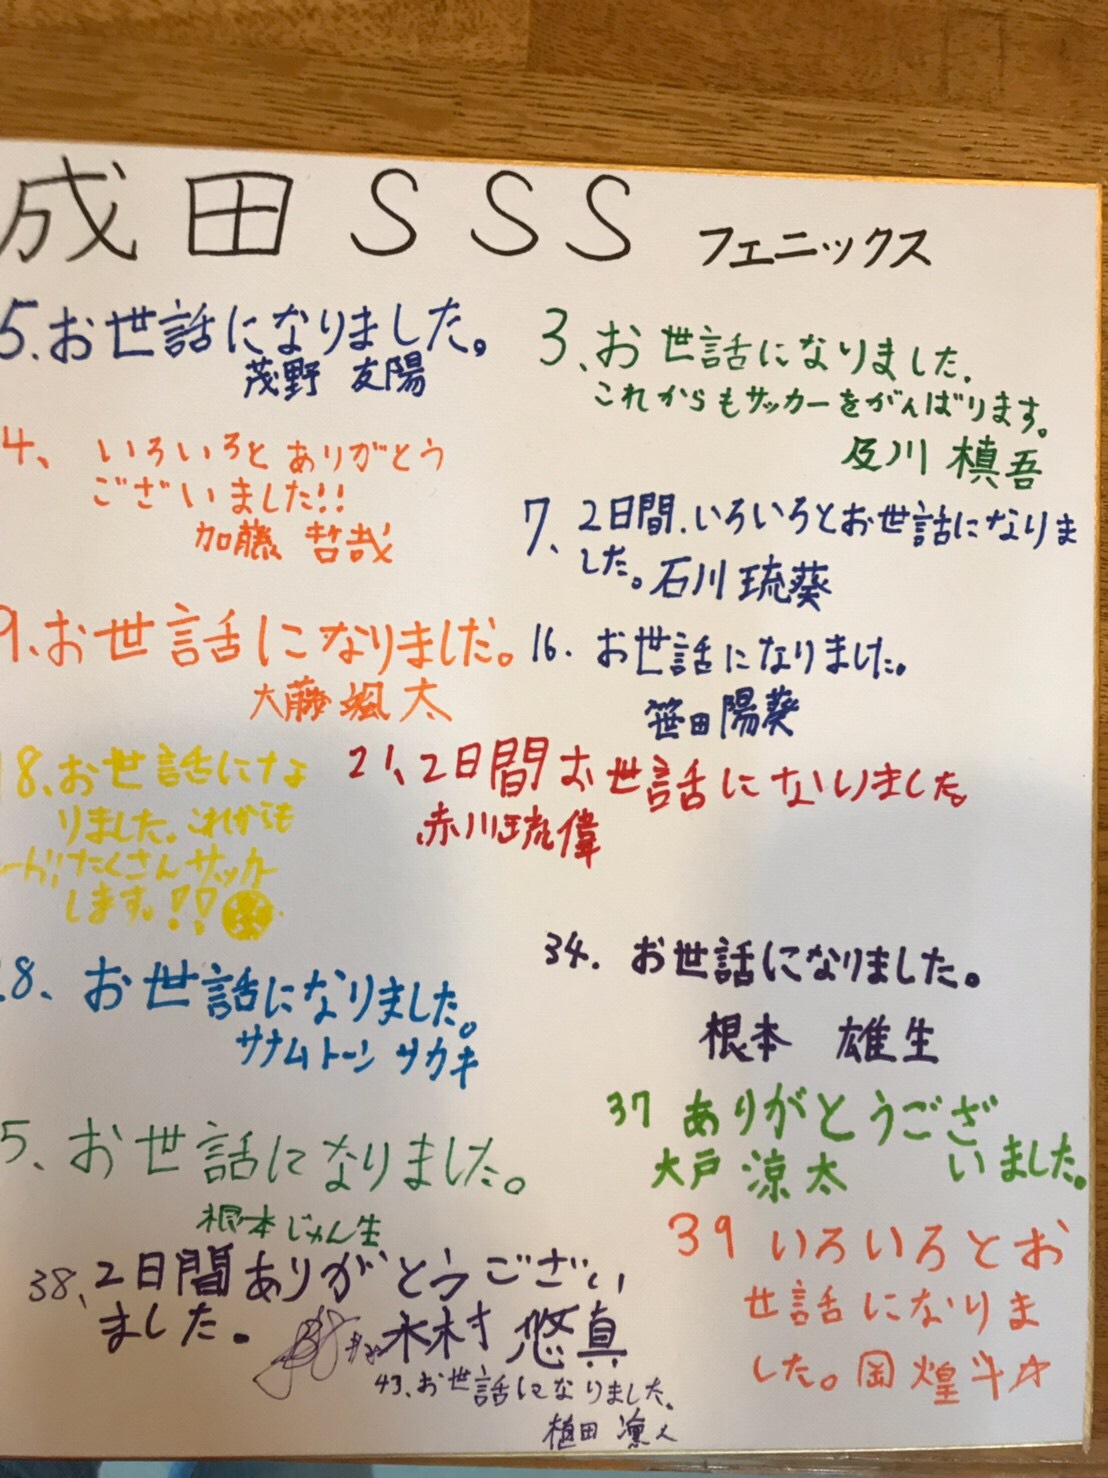 成田SSS フェニックス
5、お世話になりました。
茂野 友陽
3、お世話になりました.
これからもサッカーをがんばります。
及川 槙吾
4、いろいろとありがとう
ございました!!
加藤 哲哉
7、2日間、いろいろとお世話になりま
した。石川 琉葵
9、お世話になりました。
大藤 颯太
16. お世話になりました。
笹田 陽葵
18、お世話にな
りました。これからも
たくさんサッカー
します。!!
21、2日間お世話にないました。
赤川琉偉
8、お世話になりました。
サナムトーン サカキ
34. お世話になりました。
根本 雄生
5、お世話になりました。
根本じゅん生
37 ありがとうござ
いました。
大戸 涼太
38、2日間ありがとうござい
ました。
木村 悠真
39 いろいろとお
世話になりま
した。岡 煌斗☆
43、お世話になりました、
植田 凜人